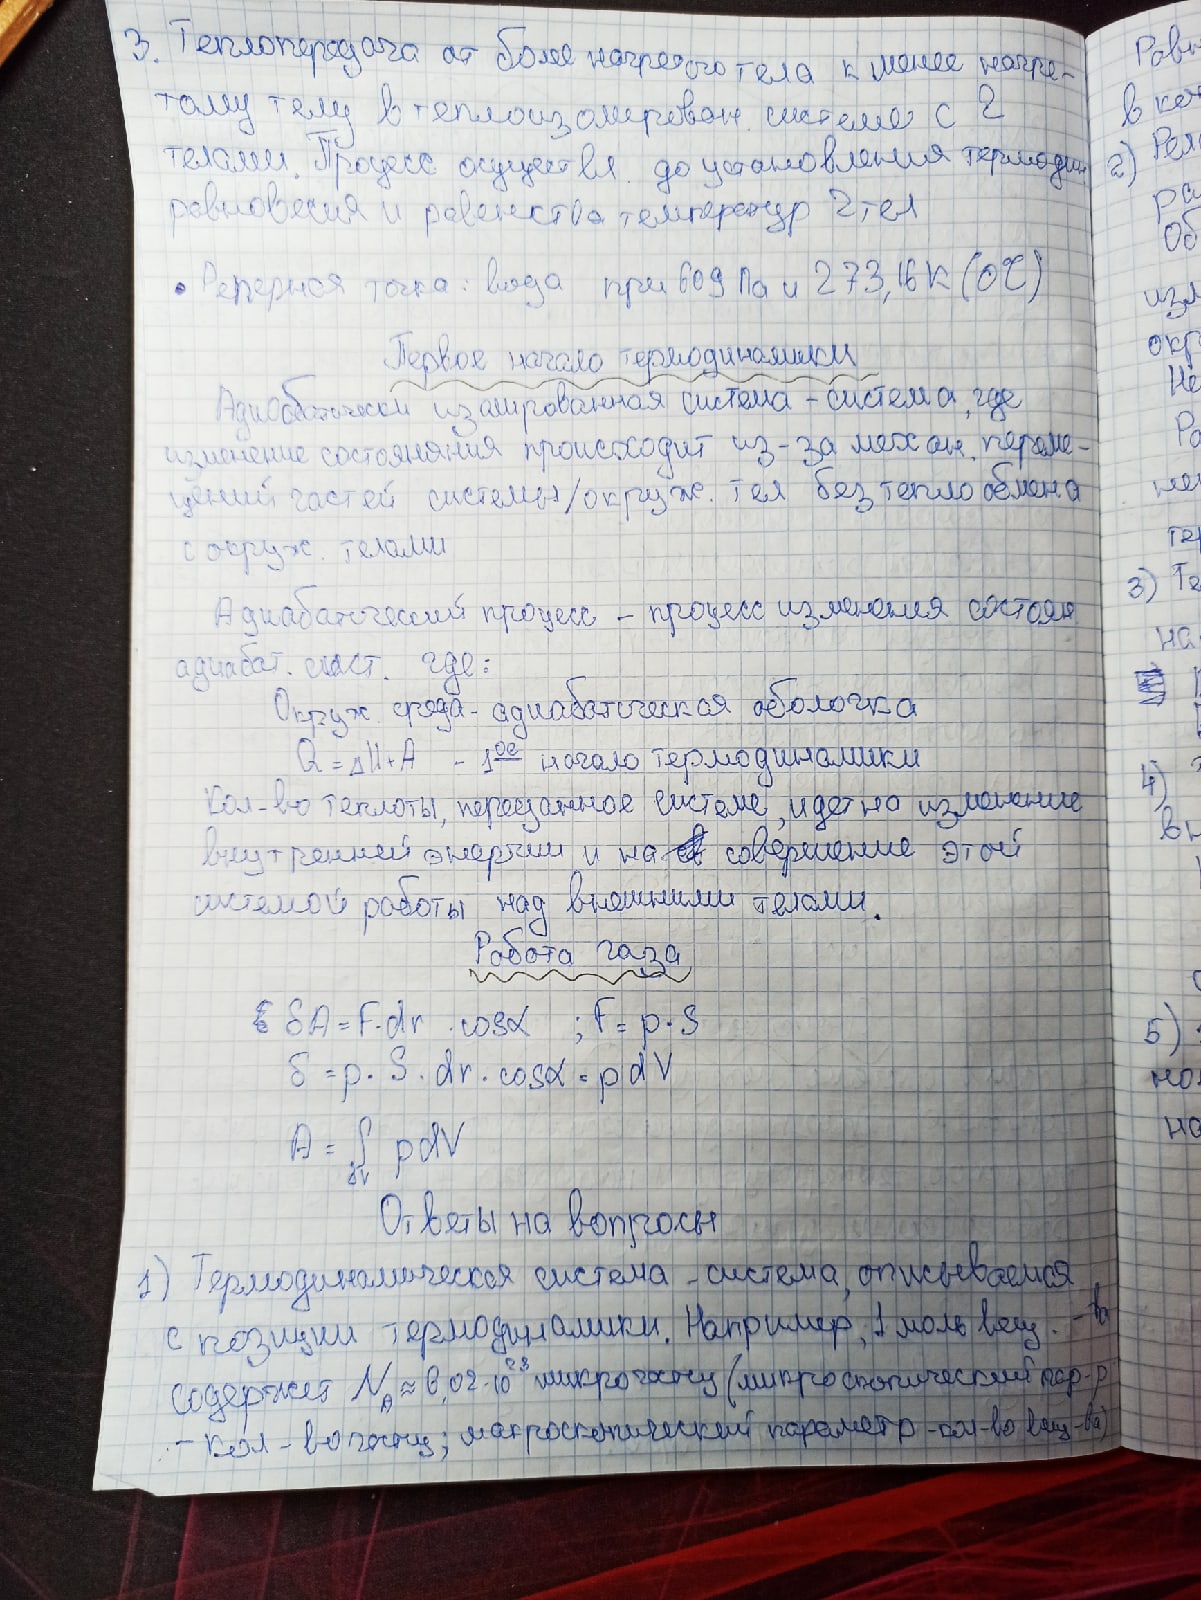 3. Теплопередача от более нагретого тела к менее нагре-
тому телу в теплоизолирован. системе с 2
телами. Процесс осуществл. до установления термодин.
равновесия и равенства температур 2 тел
• Реперная точка: вода при 609 Па и 273,16 К (0℃)
Первое начало термодинамики
Адиабатически изолированная система - система, где
изменение состояния происходит из-за механ. переме-
щений частей системы/окруж. тел без теплообмена
с окруж. телами
Адиабатический процесс - процесс изменения состоян
адиабат. сист. где:
Окруж. среда - адиабатическая оболочка
Q = ΔU + A - 1ое начало термодинамики
Кол-во теплоты, переданное системе, идет на изменение
внутренней энергии и на совершение этой
системой работы над внешними телами.
Работа газа
δA = F·dr·cosα ; F = p·S
δ = p·S·dr·cosα = pdV
A = ∫ΔV pdV
Ответы на вопросы
1) Термодинамическая система - система, описываемая
с позиции термодинамики. Например, 1 моль вещ. - ва
содержит NA ≈ 6,02·10²³ микрочастиц (микроскопический пар-р
- кол-во частиц; макроскопический параметр - кол-во вещ-ва)
Равн
в кон
2)
ра
об
изм
окр
Не
Ра
тер
3) Те
на
4)
вн
5)
на